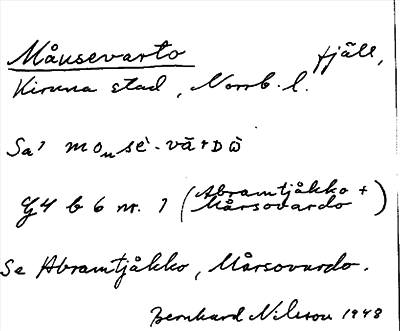 Måusevarto fjäll,
Kiruna stad, Norrb. l.
Sa'
G4 b 6 nr. 1 (Abramtjåkko + Mårsovardo)
Se Abramtjåkko, Mårsovardo.
Bernhard Nilsson 1948